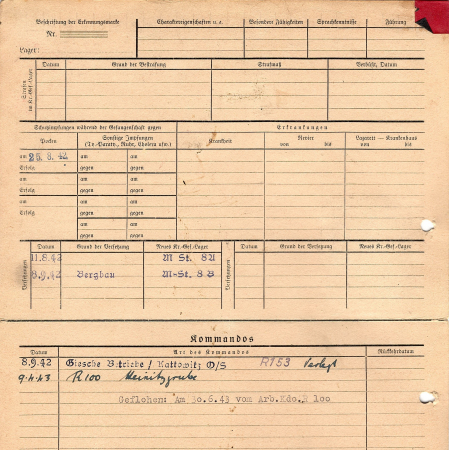 Beschriftung der Erkennungsmarke
Nr.
Lager:
Charaktereigenschaften u. s.
Besondere Fähigkeiten
Sprachkenntnisse
Führung
Strafen im Kr.-Gef.-Lager
Datum
Grund der Bestrafung
Strafmaß
Verbüßt, Datum
Schutzimpfungen während der Gefangenschaft gegen
Erkrankungen
Pocken
Sonstige Impfungen
(Ty.-Paraty., Ruhr, Cholera usw.)
Krankheit
Revier
von bis
Lazarett — Krankenhaus
von bis
am 26.8.42 am am
Erfolg gegen gegen
am am am
Erfolg gegen gegen
am am am
Erfolg gegen gegen
am am
gegen gegen
Versetzungen
Datum Grund der Versetzung Neues Kr.-Gef.-Lager Datum Grund der Versetzung Neues Kr.-Gef.-Lager
11.8.42 M St. 8U
8.9.42 Bergbau M-St. 8 B
Versetzungen
Kommandos
Datum Art des Kommandos Rückkehrdatum
8.9.42 Giesche Betriebe / Kattowitz O/S R153 verlegt
9.4.43 R100 Heinitzgrube
Geflohen: Am 30.6.43 vom Arb.Kdo.R 100